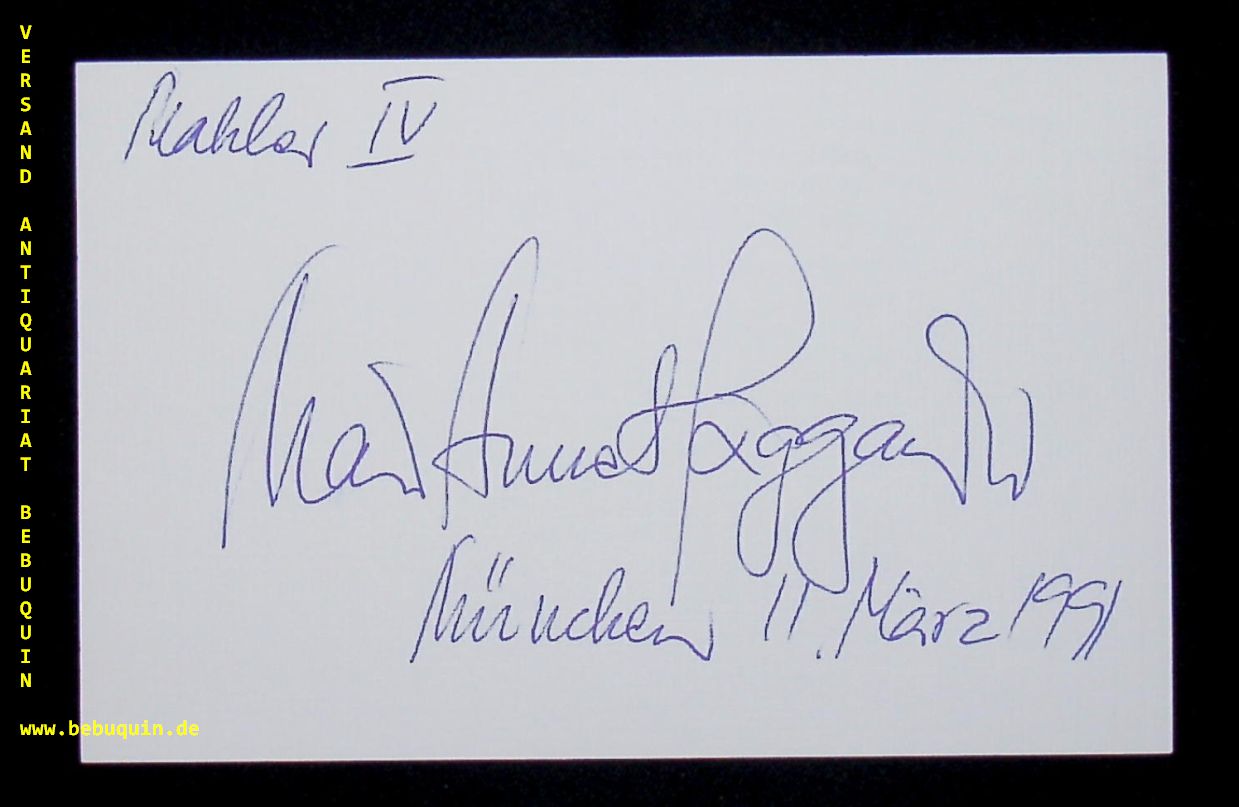 Mahler IV
Mari Anne Häggander
München 11. März 1991
VERSAND ANTIQUARIAT BEBUQUIN
www.bebuquin.de